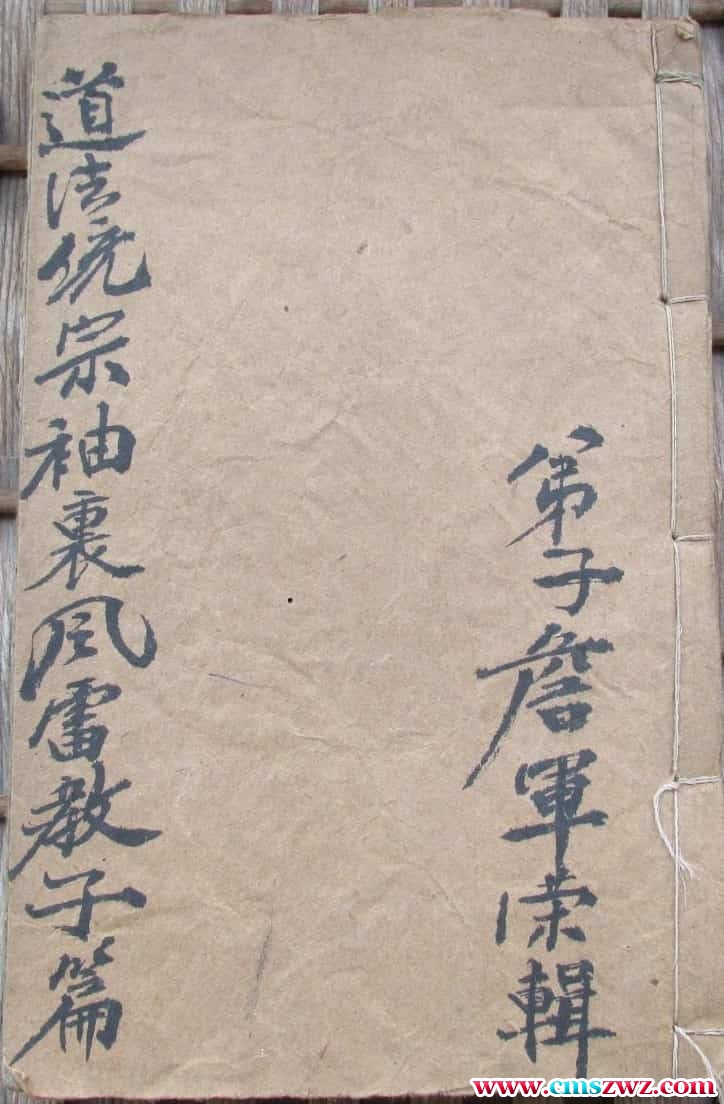 弟子詹軍荣輯
道法统宗袖裏风雷教子篇
www.cmszwz.com